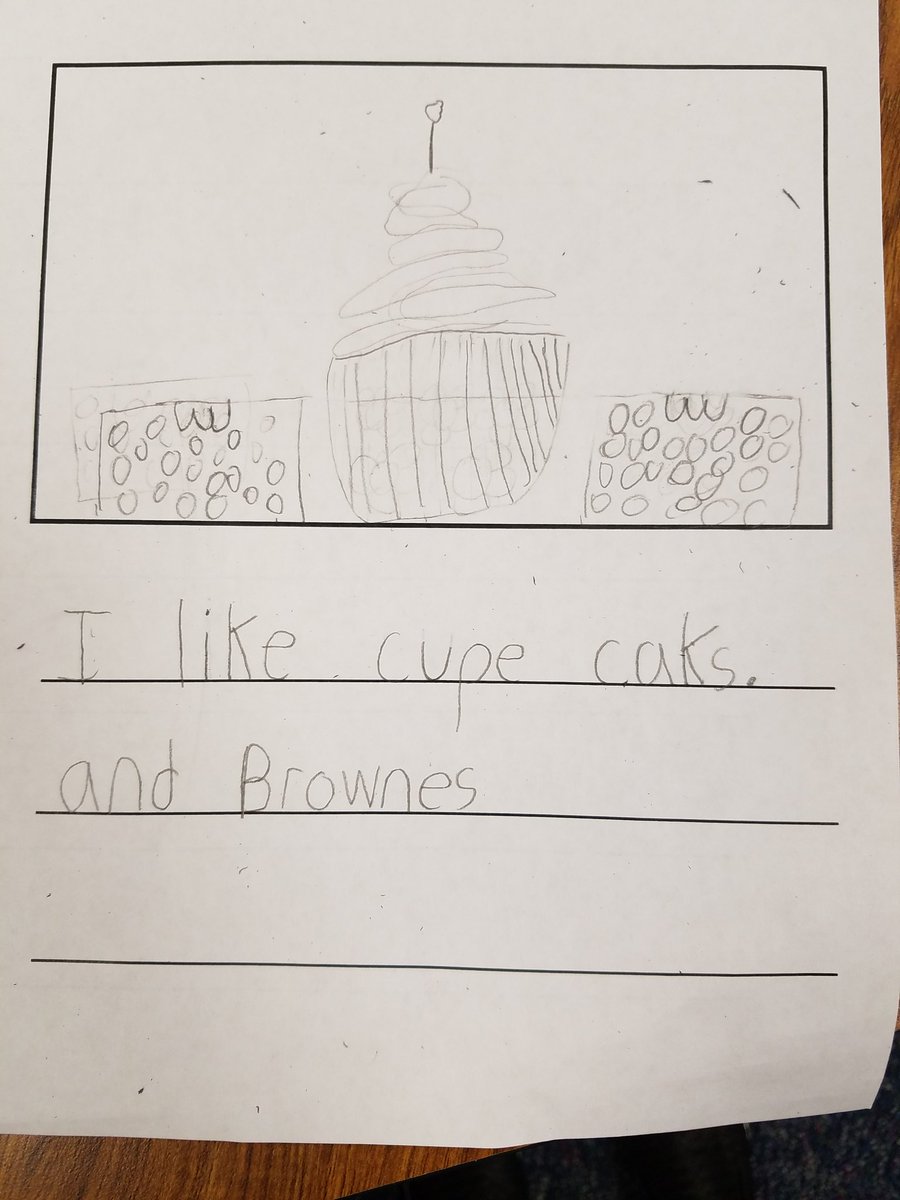 I like cupe caks.
and Brownes